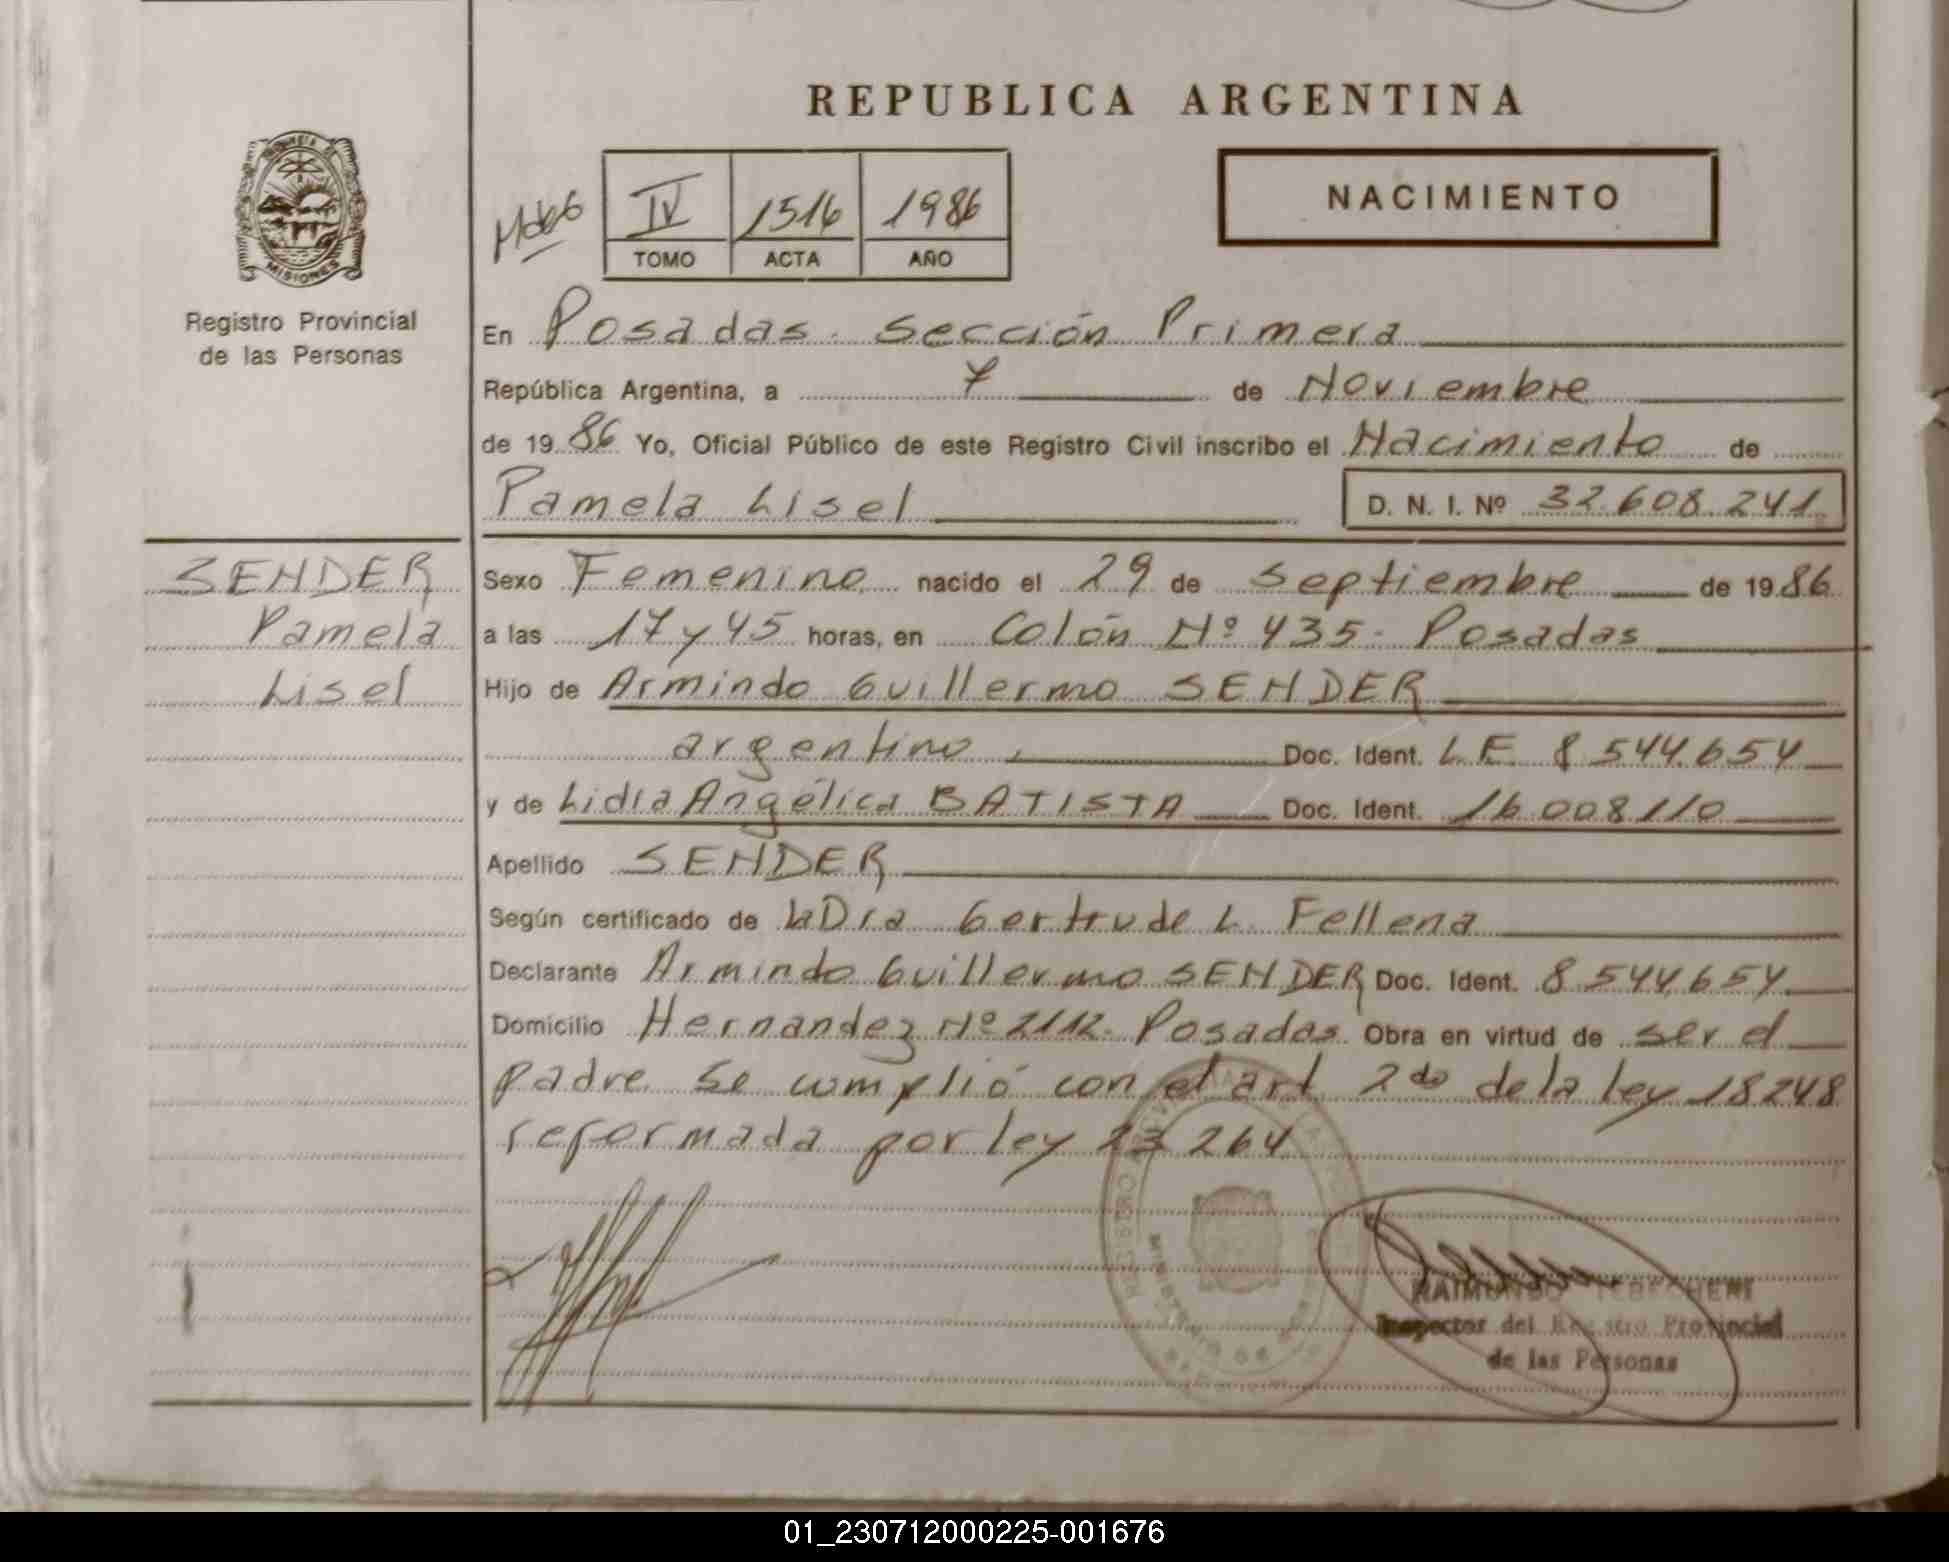 REPUBLICA ARGENTINA
MISIONES
Registro Provincial
de las Personas
IV 1516 1986
TOMO ACTA AÑO
NACIMIENTO
En Posadas. Sección Primera
República Argentina, a 7 de Noviembre
de 1986 Yo, Oficial Público de este Registro Civil inscribo el Nacimiento de
Pamela Lisel D. N. I. Nº 32.608.241
SENDER
Pamela
Lisel
Sexo Femenino nacido el 29 de Septiembre de 1986
a las 17 y 45 horas, en Colón Nº 435. Posadas
Hijo de Armindo Guillermo SENDER
argentino, Doc. Ident. L.E. 8 544.654
y de Lidia Angélica BATISTA Doc. Ident. 16 008110
Apellido SENDER
Según certificado de la Dra Gertrude L. Fellena
Declarante Armindo Guillermo SENDER Doc. Ident. 8.544.654
Domicilio Hernandez Nº 2112. Posadas. Obra en virtud de ser el
padre. Se cumplió con el art. 2do de la ley 18248
reformada por ley 23264
Inspector del Registro Provincial
de las Personas
01_230712000225-001676